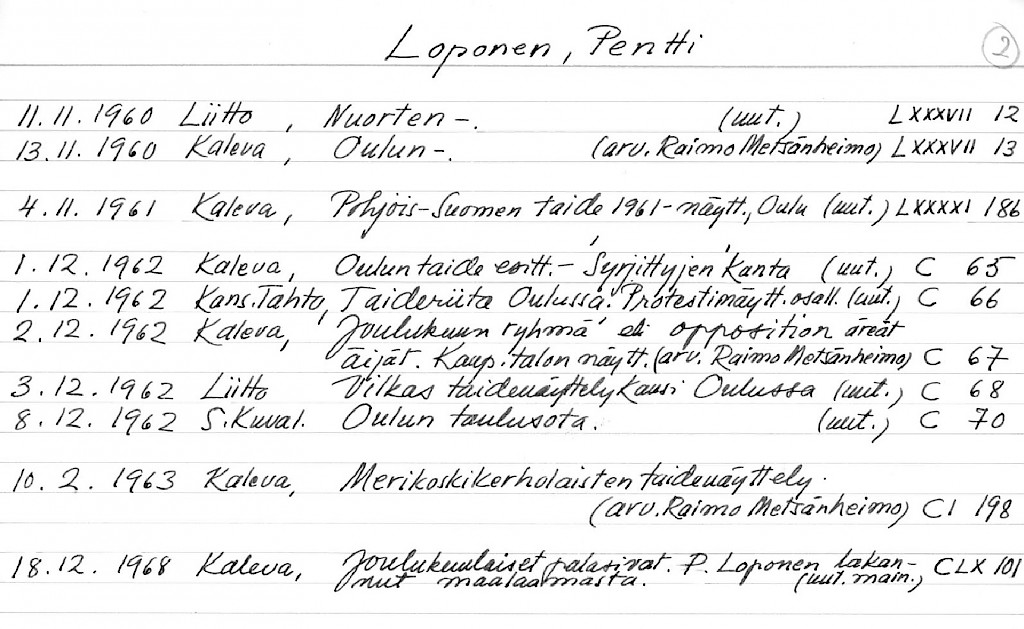 Loponen, Pentti
2
11.11.1960 Liitto, Nuorten-. (uut.) LXXXVII 12
13.11.1960 Kaleva, Oulun-. (arv. Raimo Metsänheimo) LXXXVII 13
4.11.1961 Kaleva, Pohjois-Suomen taide 1961-näytt., Oulu (uut.) LXXXXI 186
1.12.1962 Kaleva, Oulun taide esitt.- 'Syrjittyjen' kanta (uut.) C 65
1.12.1962 Kans.Tahto, Taideriita Oulussa. Protestinäytt. osall. (uut.) C 66
2.12.1962 Kaleva, 'Joulukuun ryhmä' eli opposition äreät
äijät. Kaup.talon näytt. (arv. Raimo Metsänheimo) C 67
3.12.1962 Liitto Vilkas taidenäyttelykausi Oulussa (uut.) C 68
8.12.1962 S.Kuval. Oulun taulusota. (uut.) C 70
10.2.1963 Kaleva, Merikoskikerholaisten taidenäyttely.
(arv. Raimo Metsänheimo) CI 198
18.12.1968 Kaleva, Joulukuulaiset palasivat. P. Loponen lakan- CLX 101
nut maalaamasta. (uut. main.)